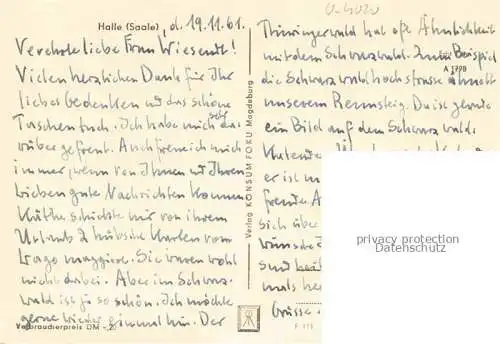 U-4020
Halle (Saale), d. 19.11.61.
Verehrte liebe Frau Wiesendt!
Vielen herzlichen Dank für Ihr
liebes Gedenken und das schöne
Taschentuch. Ich habe mich sehr da-
rüber gefreut. Auch freue ich mich
immer, wenn von Ihnen und Ihren
Lieben gute Nachrichten kommen
Käthe schickte mir von ihrem
Urlaub 2 hübsche Karten vom
Lago maggiore. Sie waren wohl
nicht dabei. Aber im Schwarz-
wald ist ja so schön. Ich möchte
gerne wieder einmal hin. Der
Verbraucherpreis DM -,20
Verlag KONSUM FOKU Magdeburg
Thüringerwald hat oft Ähnlichkeit
mit dem Schwarzwald. Zum Beispiel
A 1798
die Schwarzwaldhochstrasse ähnelt
unserem Rennsteig. Da ist gerade
ein Bild auf dem Schwarzwald-
Kalender
er ist
freuden
sich über
wünsche
sind
mals
Grüsse
privacy protection
Datenschutz